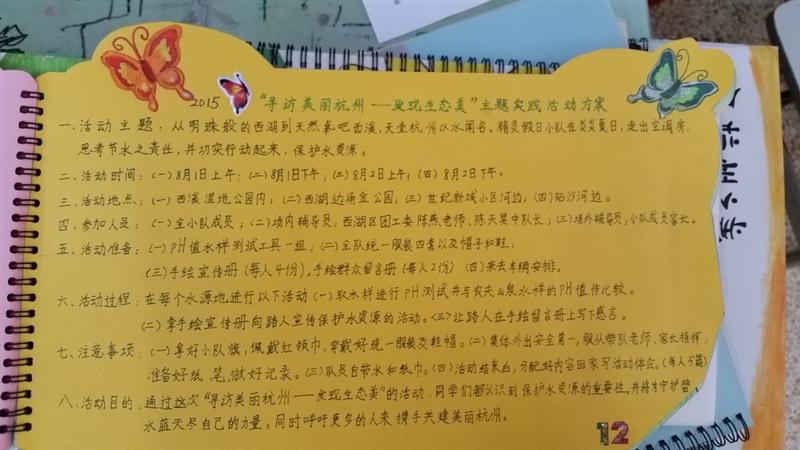 2015 “寻访美丽杭州——发现生态美”主题实践活动方案
一、活动主题：从明珠般的西湖到天然氧吧西溪，天堂杭州以水闻名。精灵假日小队在炎炎夏日，走出空调房，
思考节水之责任，并切实行动起来，保护水资源。
二、活动时间：(一)8月1日上午；(二)8月1日下午；(三)8月2日上午；(四)8月2日下午。
三、活动地点：(一)西溪湿地公园内；(二)西湖边涌金公园，(三)世纪新城小区河边，(四)贴沙河边。
四、参加人员：(一)全小队成员；(二)场内辅导员，西湖区团工委陈燕老师、陈天昊中队长；(三)场外辅导员，小队成员家长。
五、活动准备：(一)PH值水样测试工具一组；(二)全队统一服装四套以及帽子和鞋；
(三)手绘宣传册(每人4份)，手绘群众留言册(每人2份) (四)来去车辆安排。
六、活动过程：在每个水源地进行以下活动(一)取水样进行PH测试并与农夫山泉水样的PH值作比较。
(二)拿手绘宣传册向路人宣传保护水资源的活动。(三)让路人在手绘留言册上写下感言。
七、注意事项：(一)拿好小队旗，佩戴红领巾，穿戴好统一服装及鞋帽。(二)集体外出安全第一，服从带队老师、家长指挥，
准备好纸、笔，做好记录。(三)队员自带水和纸巾。(四)活动结束后，分配好内容回家写活动体会。(每人5篇)
八、活动目的：通过这次“寻访美丽杭州——发现生态美”的活动，同学们都认识到保护水资源的重要性。并将为守护碧
水蓝天尽自己的力量。同时呼吁更多的人来携手共建美丽杭州。
12